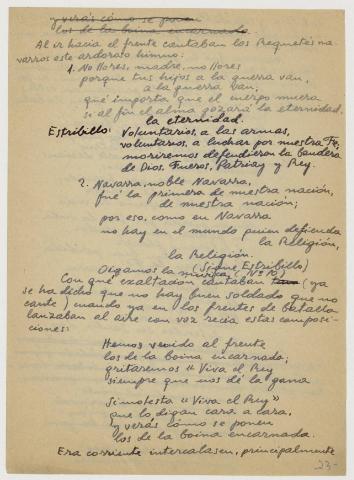 y verás cómo se ponen
los de la boina encarnada.
Al ir hacia el frente cantaban los Requetés na-
varros este ardoroso himno:
1. No llores, madre, no llores
porque tus hijos a la guerra van,
a la guerra van;
qué importa que el cuerpo muera
si al fin el alma gozará la eternidad.
la eternidad.
Estribillo: Voluntarios, a las armas,
voluntarios, a luchar por nuestra Fe,
moriremos defendiendo la bandera
de Dios, Fueros, Patria y Rey.
2. Navarra, noble Navarra,
fué la primera de nuestra nación,
de nuestra nación;
por eso, como en Navarra
no hay en el mundo quien defienda
la Religión,
la Religión.
(Sigue Estribillo)
Oigamos la música, (Nº 10)
Con qué exaltación cantaban (ya
se ha dicho que no hay buen soldado que no
cante) cuando ya en los frentes de batalla
lanzaban al aire con voz recia estas composi-
ciones:
Hemos venido al frente
los de la boina encarnada;
gritaremos "Viva el Rey
siempre que nos dé la gana
Si molesta "Viva el Rey"
que lo digan cara a cara,
y verás cómo se ponen
los de la boina encarnada.
Era corriente intercalasen, principalmente
23-